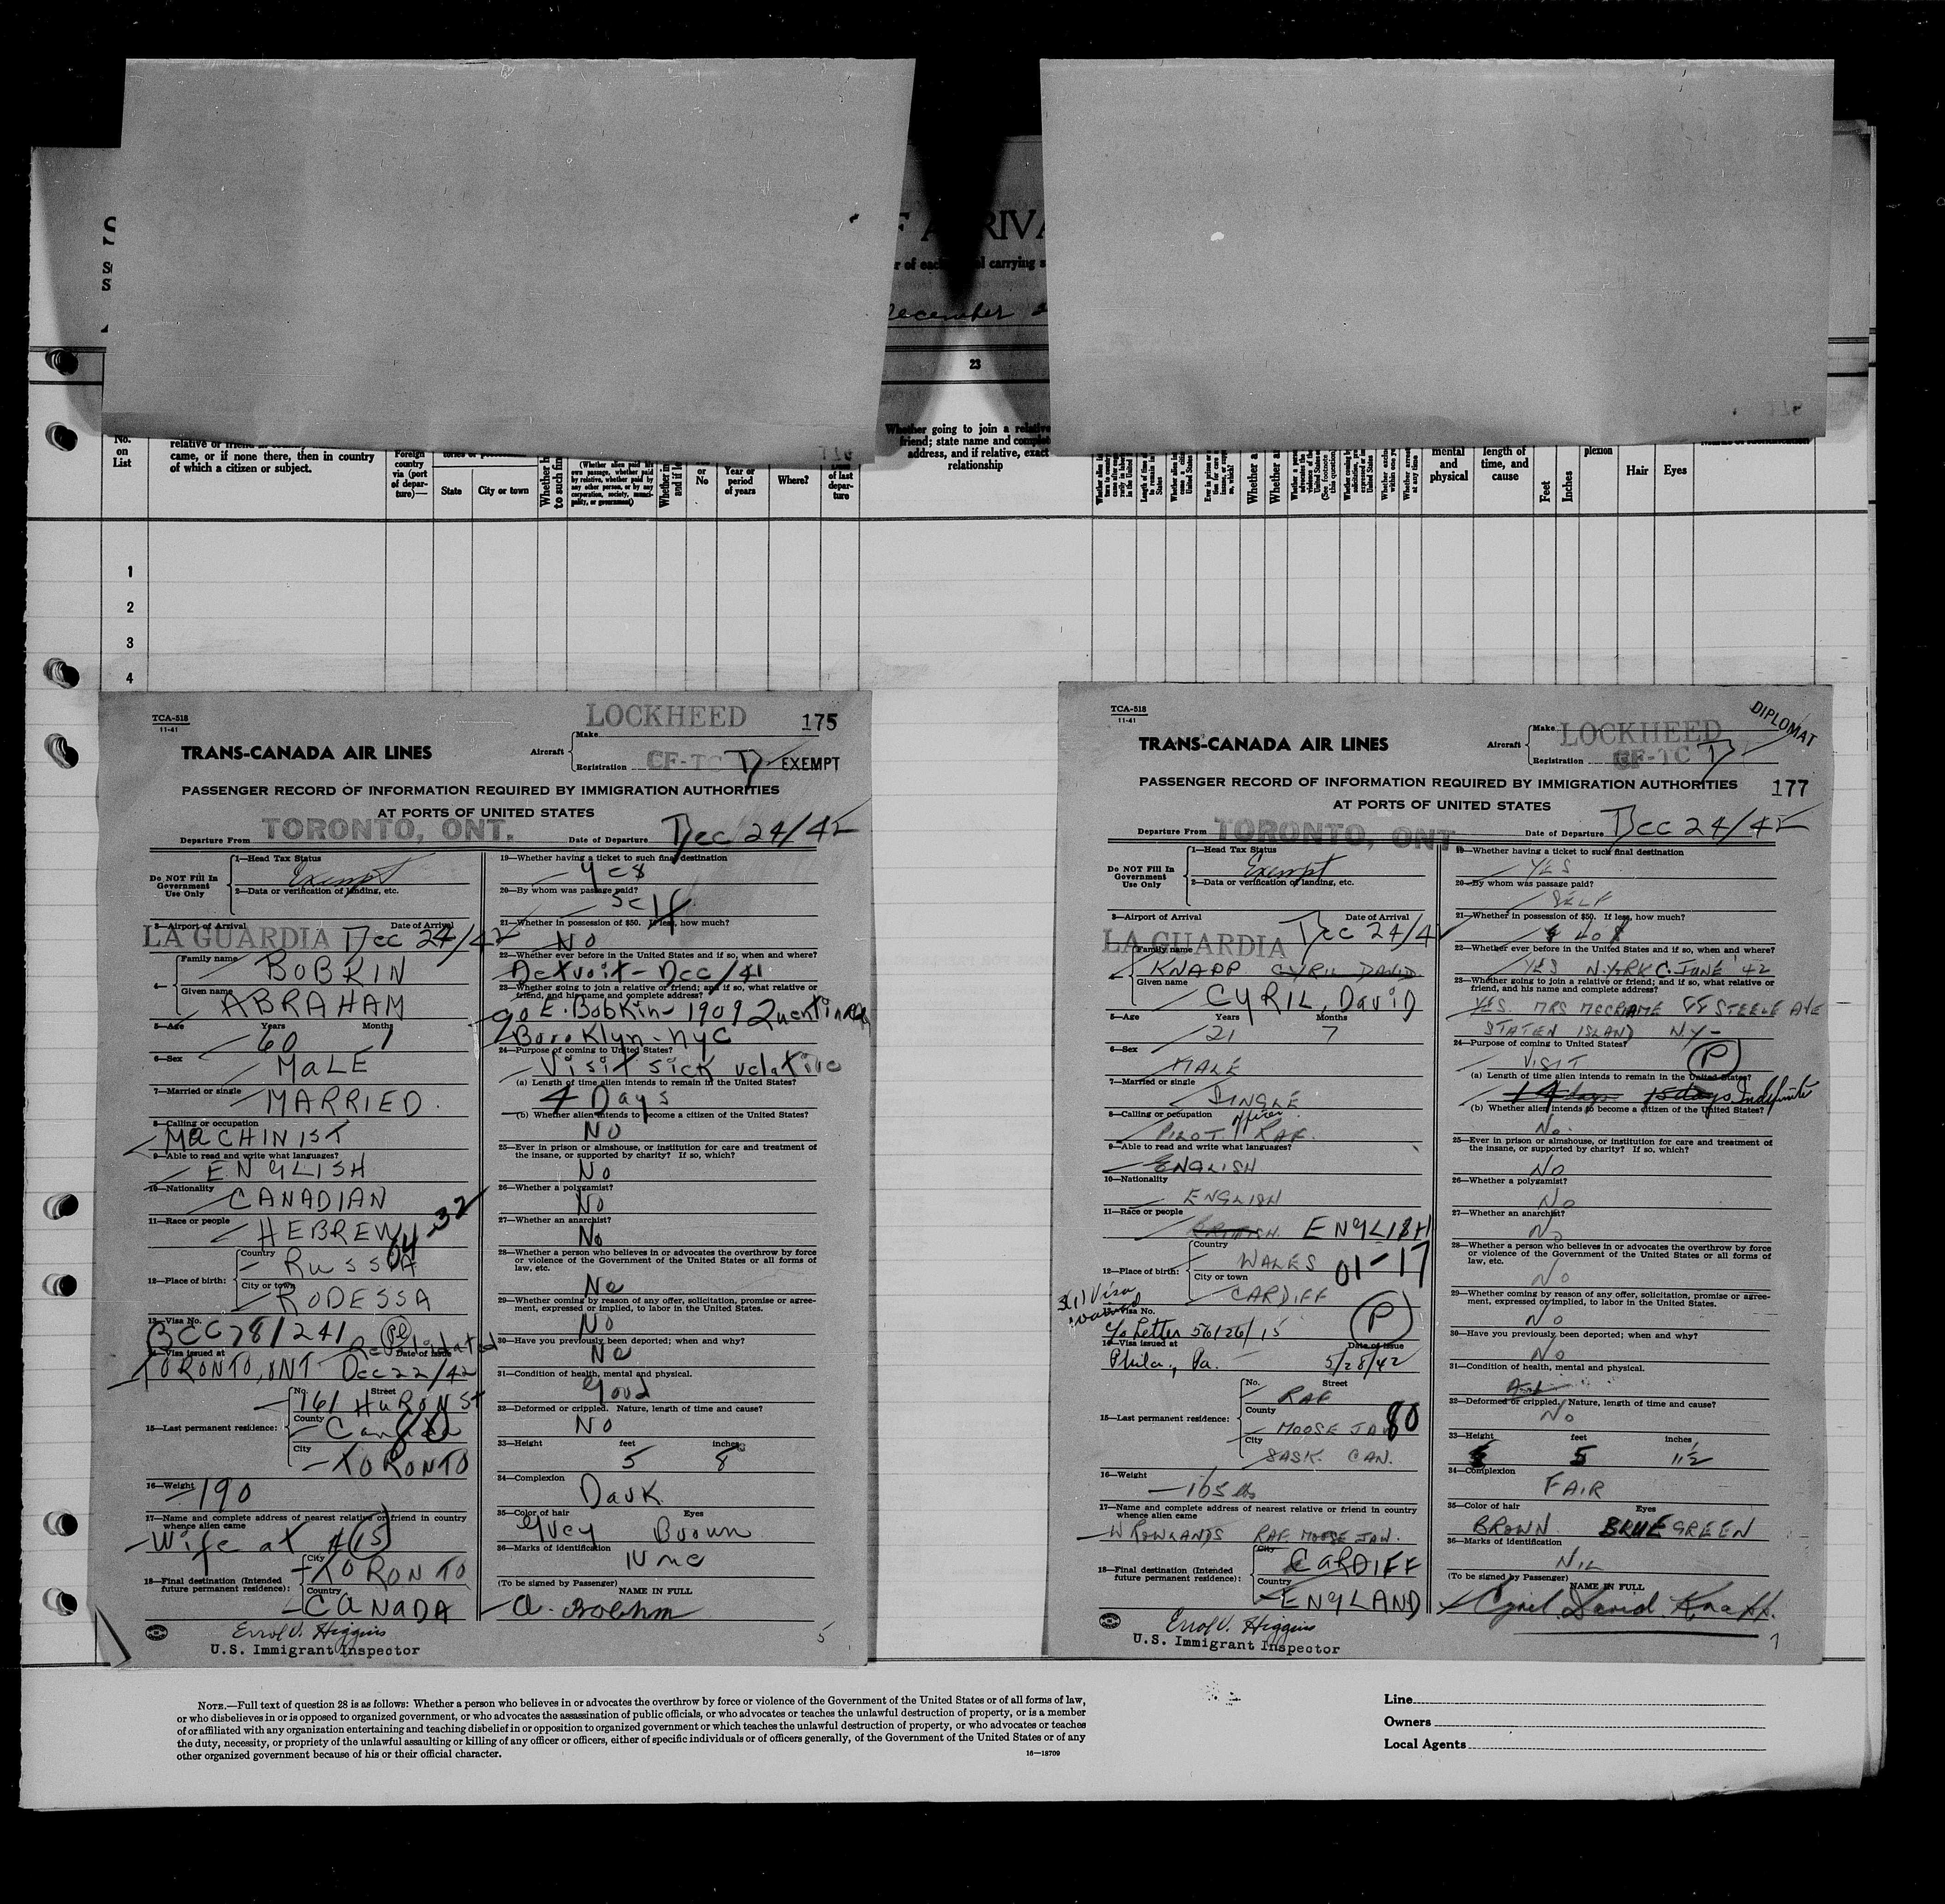 F A RIVA
r of each carrying s
December 2
23
No.
on
List
relative or friend
came, or if none there, then in country
of which a citizen or subject.
Foreign
country
via (port
of depar-
ture)—
State
City or town
(Whether alien paid his
own passage, whether paid
by relative, whether paid by
any other person, or by any
corporation, society, munici-
pality, or government)
or
No
Year or
period
of years
Where?
of last
depar-
ture
Whether going to join a relative
friend; state name and complete
address, and if relative, exact
relationship
mental
and
physical
length of
time, and
cause
Feet
Inches
plexion
Hair
Eyes
1
2
3
4
TCA-518
11-41
LOCKHEED
175
TRANS-CANADA AIR LINES
Aircraft
Make
Registration CF-TC D EXEMPT
PASSENGER RECORD OF INFORMATION REQUIRED BY IMMIGRATION AUTHORITIES
AT PORTS OF UNITED STATES
Departure From TORONTO, ONT. Date of Departure Dec 24/42
Do NOT Fill In
Government
Use Only
1—Head Tax Status
Exempt
2—Data or verification of landing, etc.
3—Airport of Arrival Date of Arrival
LA GUARDIA Dec 24/42
4—
Family name
BOBKIN
Given name
ABRAHAM
5—Age Years Months
60 1
6—Sex
MALE
7—Married or single
MARRIED.
8—Calling or occupation
MACHINIST
9—Able to read and write what languages?
ENGLISH
10—Nationality
CANADIAN
11—Race or people
HEBREW 04-32
12—Place of birth:
Country
RUSSIA
City or town
RODESSA
13—Visa No.
BCC781241
14—Visa issued at Date of Issue
TORONTO, ONT Dec 22/42
15—Last permanent residence:
No. Street
161 HURON ST
County
Canada
City
TORONTO
16—Weight
190
17—Name and complete address of nearest relative or friend in country
whence alien came
Wife at #15
18—Final destination (Intended
future permanent residence):
City
TORONTO
Country
CANADA
Errol V. Higgins
U.S. Immigrant Inspector
19—Whether having a ticket to such final destination
Yes
20—By whom was passage paid?
Self
21—Whether in possession of $50. If less, how much?
No
22—Whether ever before in the United States and if so, when and where?
Detroit - Dec/41
23—Whether going to join a relative or friend; and if so, what relative or
friend, and his name and complete address?
go E. Bobkin - 1909
Brooklyn - NYC
24—Purpose of coming to United States?
Visit sick relative
(a) Length of time alien intends to remain in the United States?
4 Days
(b) Whether alien intends to become a citizen of the United States?
NO
25—Ever in prison or almshouse, or institution for care and treatment of
the insane, or supported by charity? If so, which?
No
26—Whether a polygamist?
No
27—Whether an anarchist?
No
28—Whether a person who believes in or advocates the overthrow by force
or violence of the Government of the United States or all forms of
law, etc.
No
29—Whether coming by reason of any offer, solicitation, promise or agree-
ment, expressed or implied, to labor in the United States.
NO
30—Have you previously been deported; when and why?
No
31—Condition of health, mental and physical.
Good
32—Deformed or crippled. Nature, length of time and cause?
NO
33—Height feet inches
5 8
34—Complexion
Dark
35—Color of hair Eyes
Grey Brown
36—Marks of identification
None
(To be signed by Passenger)
NAME IN FULL
5
TCA-518
11-41
LOCKHEED
DIPLOMAT
TRANS-CANADA AIR LINES
Aircraft
Make
Registration CF-TC D
PASSENGER RECORD OF INFORMATION REQUIRED BY IMMIGRATION AUTHORITIES 177
AT PORTS OF UNITED STATES
Departure From TORONTO, ONT Date of Departure Dec 24/42
Do NOT Fill In
Government
Use Only
1—Head Tax Status
Exempt
2—Data or verification of landing, etc.
3—Airport of Arrival Date of Arrival
LA GUARDIA Dec 24/4
4
Family name
KNAPP CYRIL DAVID
Given name
CYRIL, David
5—Age Years Months
21 7
6—Sex
MALE
7—Married or single
SINGLE
8—Calling or occupation
PILOT officer RAF.
9—Able to read and write what languages?
ENGLISH
10—Nationality
ENGLISH
11—Race or people
BRITISH. ENGLISH
12—Place of birth:
Country
WALES 01-17
City or town
CARDIFF
3(1) Visa
waived
13—Visa No.
c/o Letter 56126/15 P
14—Visa issued at Date of Issue
Phila., Pa. 5/28/42
15—Last permanent residence:
No. Street
RAF
County
MOOSE JAW 80
City
SASK. CAN.
16—Weight
165 lbs
17—Name and complete address of nearest relative or friend in country
whence alien came
W ROWLANDS RAF. MOOSE JAW.
18—Final destination (Intended
future permanent residence):
City
CARDIFF
Country
ENGLAND
Errol V. Higgins
U.S. Immigrant Inspector
19—Whether having a ticket to such final destination
YES
20—By whom was passage paid?
SELF
21—Whether in possession of $50. If less, how much?
$ 40
22—Whether ever before in the United States and if so, when and where?
YES N.YORK C. JUNE '42
23—Whether going to join a relative or friend; and if so, what relative or
friend, and his name and complete address?
YES. MRS STEELE AVE
STATEN ISLAND NY-
24—Purpose of coming to United States?
VISIT P
(a) Length of time alien intends to remain in the United States?
14 days 15 days Indefinite
(b) Whether alien intends to become a citizen of the United States?
No.
25—Ever in prison or almshouse, or institution for care and treatment of
the insane, or supported by charity? If so, which?
NO
26—Whether a polygamist?
NO
27—Whether an anarchist?
NO
28—Whether a person who believes in or advocates the overthrow by force
or violence of the Government of the United States or all forms of
law, etc.
NO
29—Whether coming by reason of any offer, solicitation, promise or agree-
ment, expressed or implied, to labor in the United States.
NO
30—Have you previously been deported; when and why?
NO
31—Condition of health, mental and physical.
32—Deformed or crippled. Nature, length of time and cause?
No
33—Height feet inches
5 11½
34—Complexion
FAIR
35—Color of hair Eyes
BROWN BLUE GREEN
36—Marks of identification
NIL
(To be signed by Passenger)
NAME IN FULL
Cyril David Knapp.
7
NOTE.—Full text of question 28 is as follows: Whether a person who believes in or advocates the overthrow by force or violence of the Government of the United States or of all forms of law,
or who disbelieves in or is opposed to organized government, or who advocates the assassination of public officials, or who advocates or teaches the unlawful destruction of property, or is a member
of or affiliated with any organization entertaining and teaching disbelief in or opposition to organized government or which teaches the unlawful destruction of property, or who advocates or teaches
the duty, necessity, or propriety of the unlawful assaulting or killing of any officer or officers, either of specific individuals or of officers generally, of the Government of the United States or of any
other organized government because of his or their official character.
16—18709
Line
Owners
Local Agents